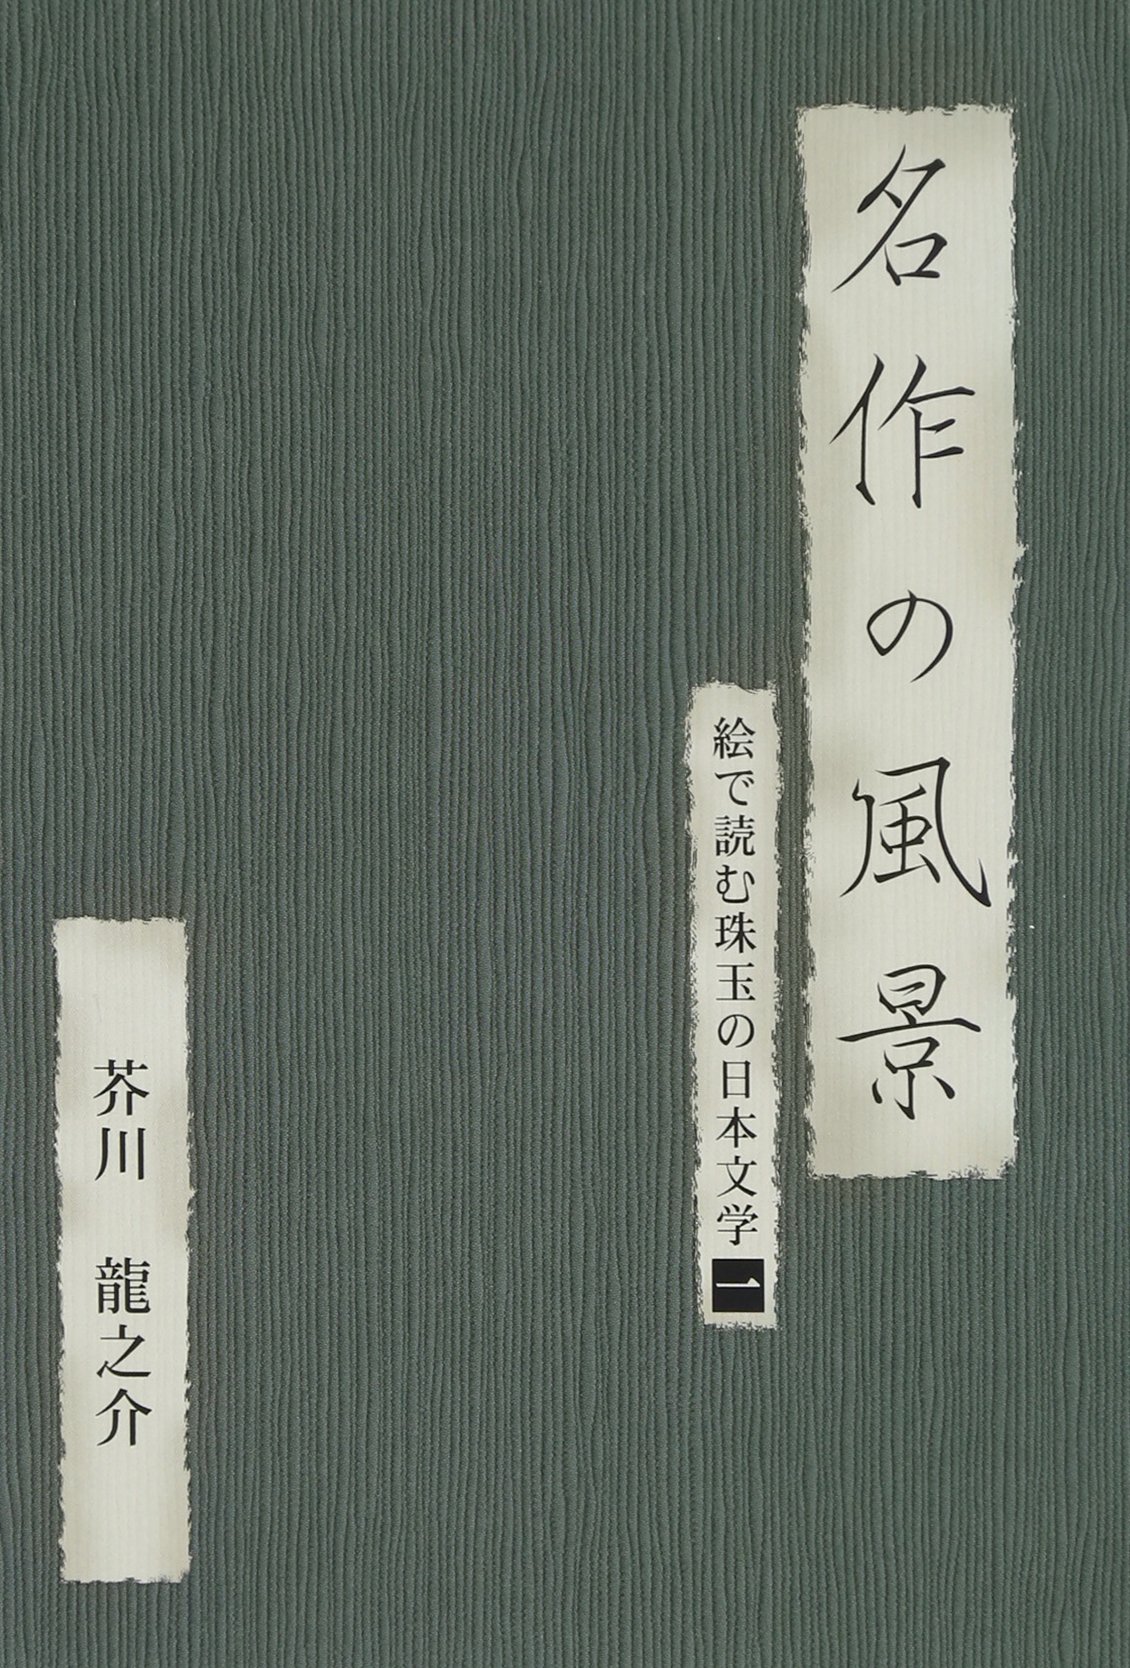 名作の風景
絵で読む珠玉の日本文学 一
芥川 龍之介